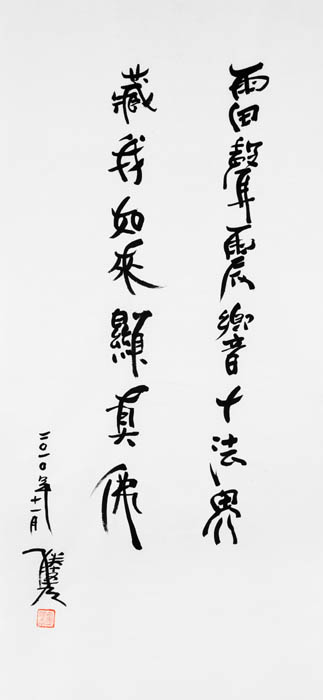 雷聲震響十法界
藏我如來顯真佛
二〇一〇年十一月